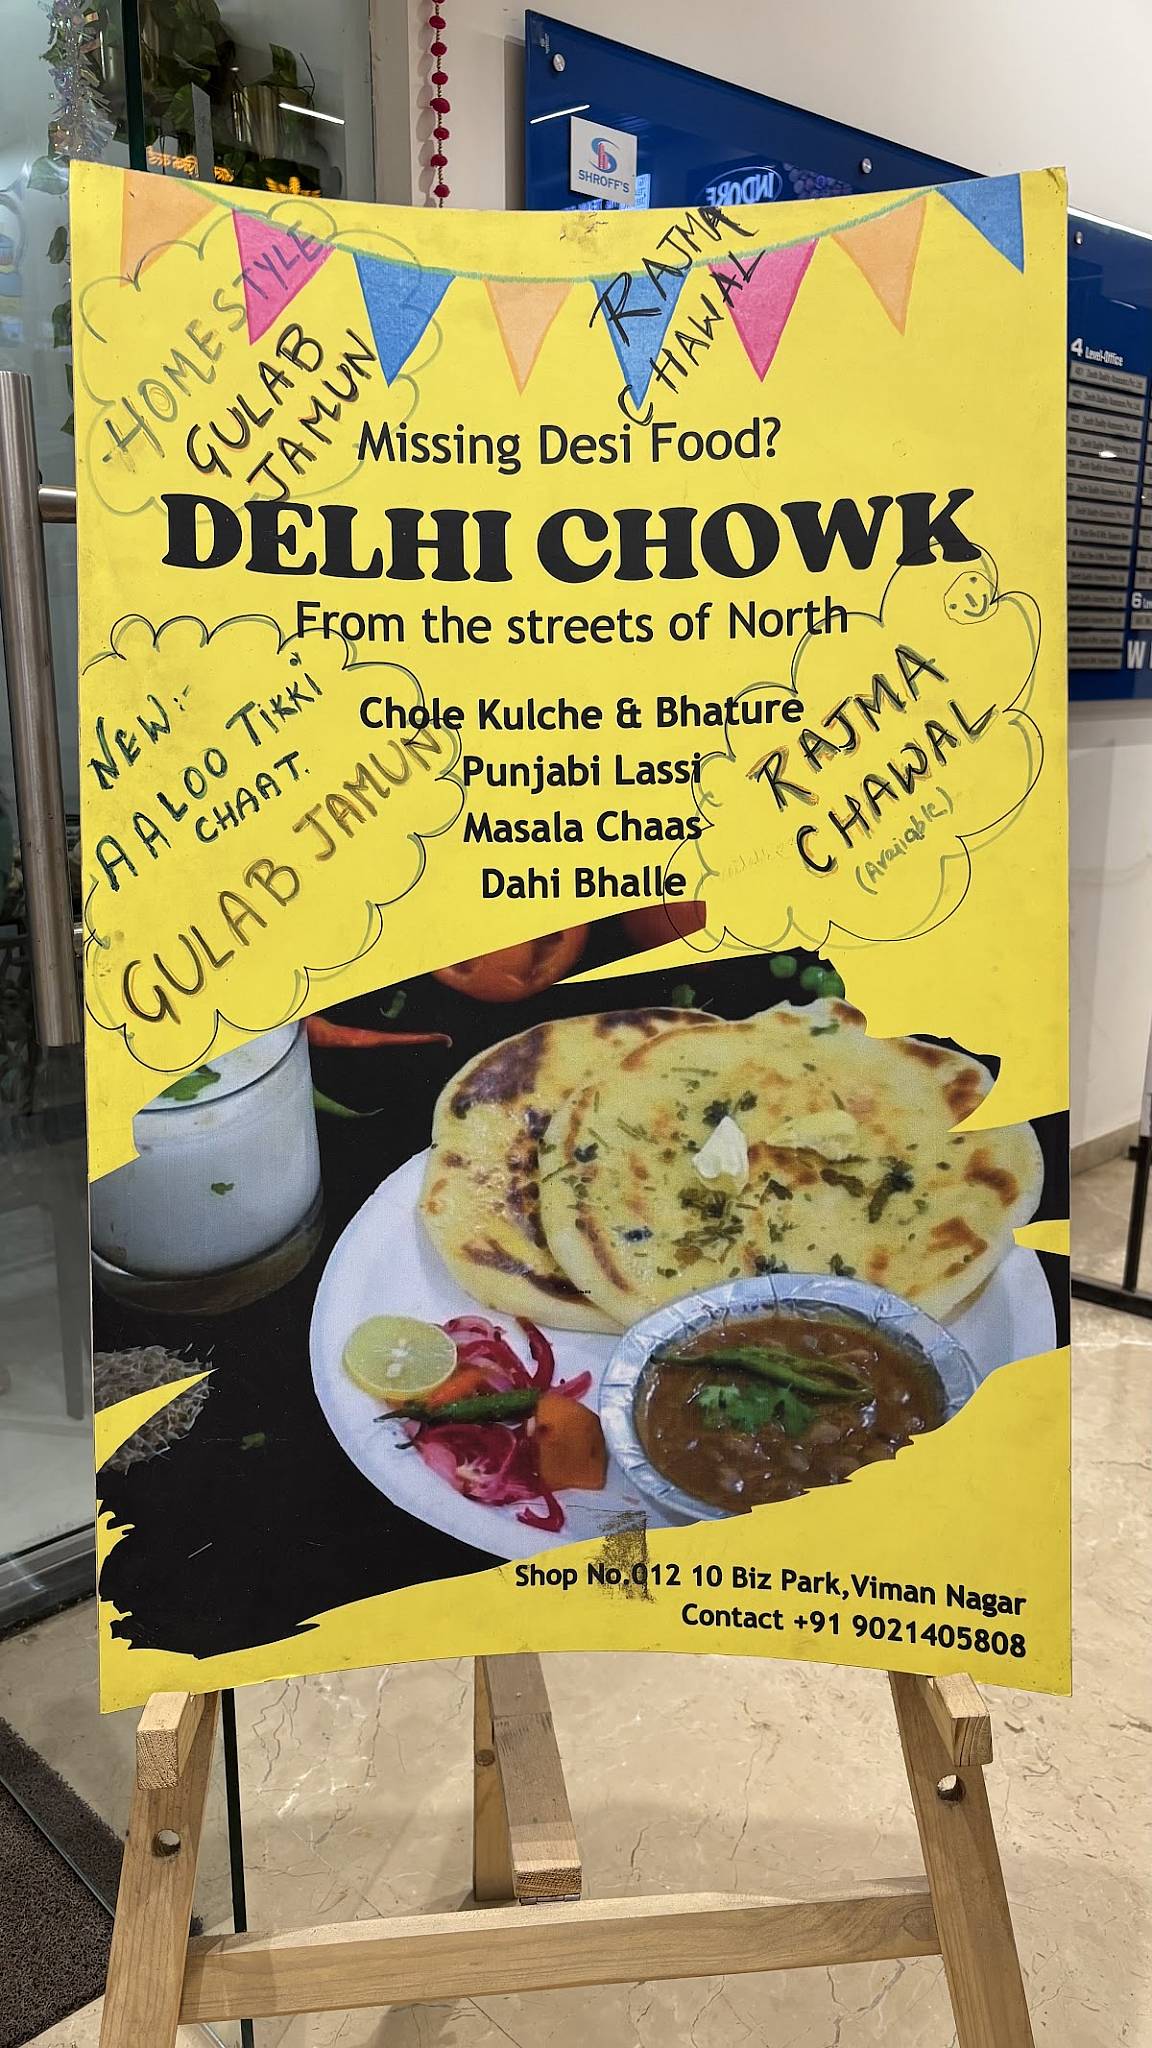 SHROFF'S
INDORE
HOMESTYLE
GULAB
JAMUN
RAJMA
CHAWAL
Missing Desi Food?
DELHI CHOWK
From the streets of North
NEW:-
AALOO TIKKI
CHAAT.
GULAB JAMUN
Chole Kulche & Bhature
Punjabi Lassi
Masala Chaas
Dahi Bhalle
RAJMA
CHAWAL
(Available)
Shop No.012 10 Biz Park,Viman Nagar
Contact +91 9021405808
4 Level-Office
6
W